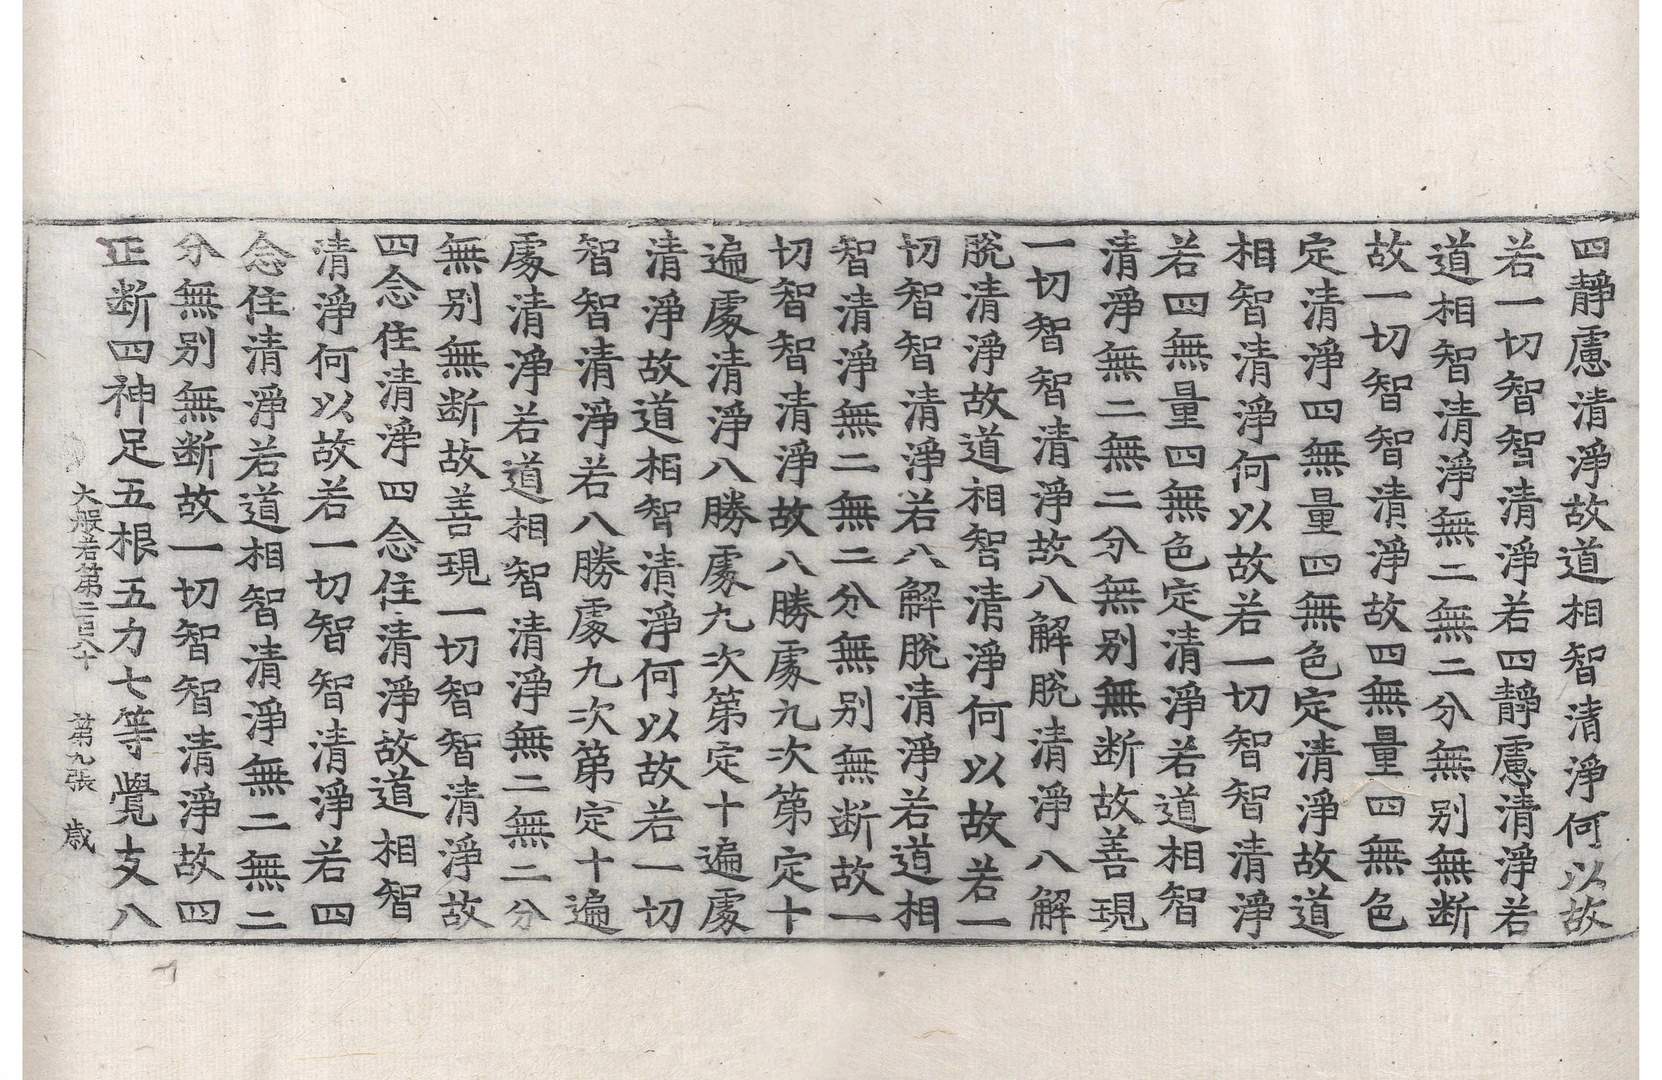 四靜慮清淨故道相智清淨何以故
若一切智智清淨若四靜慮清淨若
道相智清淨無二無二分無别無断
故一切智智清淨故四無量四無色
定清淨四無量四無色定清淨故道
相智清淨何以故若一切智智清淨
若四無量四無色定清淨若道相智
清淨無二無二分無别無断故善現
一切智智清淨故八解脱清淨八解
脱清淨故道相智清淨何以故若一
切智智清淨若八解脱清淨若道相
智清淨無二無二分無别無断故一
切智智清淨故八勝處九次第定十
遍處清淨八勝處九次第定十遍處
清淨故道相智清淨何以故若一切
智智清淨若八勝處九次第定十遍
處清淨若道相智清淨無二無二分
無别無断故善現一切智智清淨故
四念住清淨四念住清淨故道相智
清淨何以故若一切智智清淨若四
念住清淨若道相智清淨無二無二
分無别無断故一切智智清淨故四
正断四神足五根五力七等覺支八
大般若第二百六十 第九張 歲